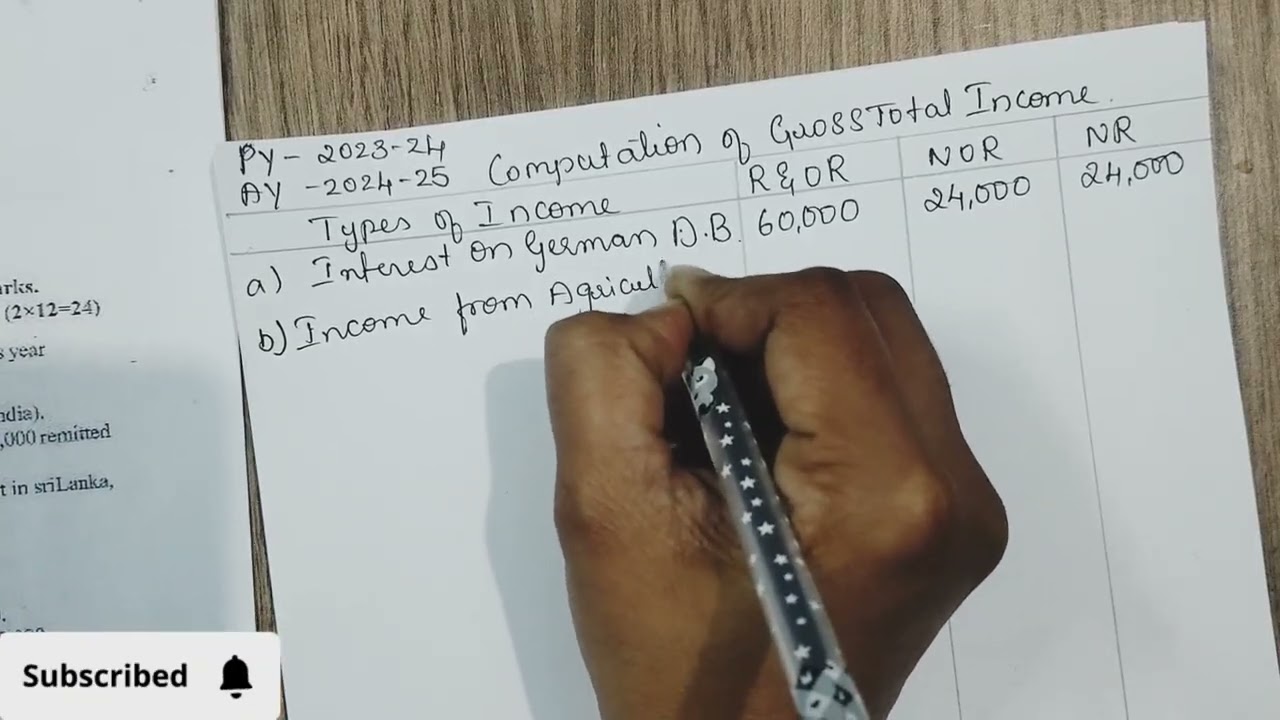 PY - 2023-24
AY - 2024-25
Computation of Gross Total Income.
Types of Income R & OR NOR NR
a) Interest on German D.B. 60,000 24,000 24,000
b) Income from Agricul
(2×12=24)
year
,000 remitted
t in sriLanka,
Subscribed